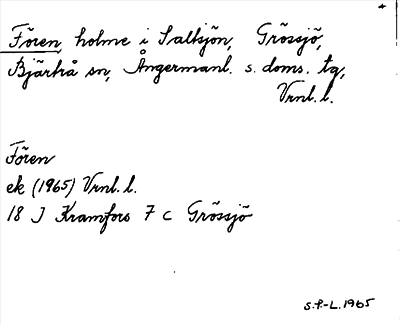 Fören, holme i Saltsjön, Grössjö,
Bjärtrå sn, Ångermanl. s. doms. tg,
Vrnl. l.
Fören
ek (1965) Vrnl. l.
18 J Kramfors 7 c Grössjö
S.P-L. 1965